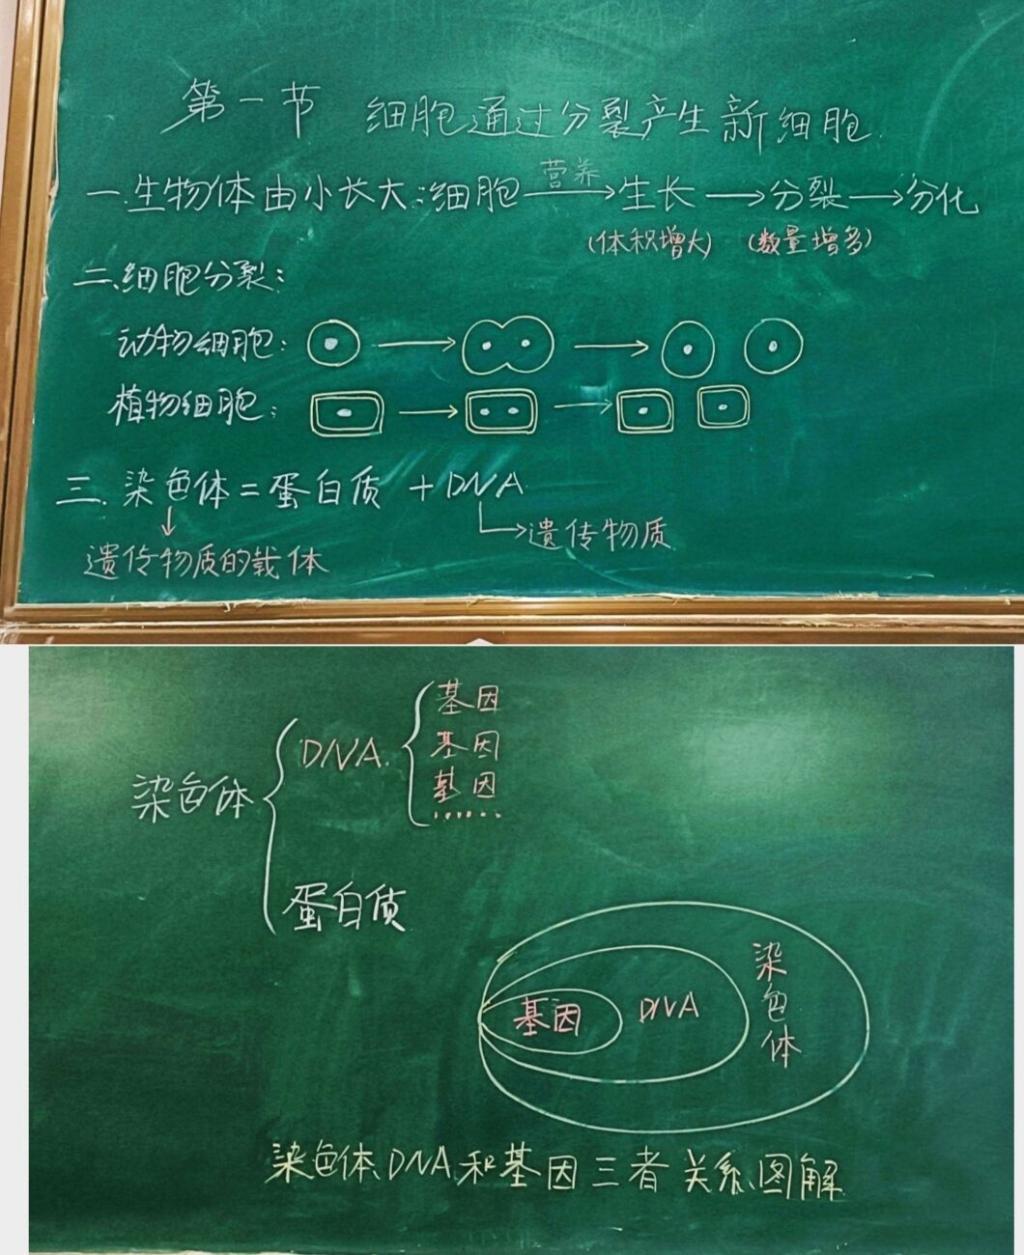 第一节 细胞通过分裂产生新细胞
一.生物体由小长大:细胞 营养→生长→分裂→分化
(体积增大) (数量增多)
二.细胞分裂:
动物细胞:
植物细胞:
三.染色体=蛋白质+DNA
遗传物质
遗传物质的载体
基因
DNA. 基因
染色体 基因
......
蛋白质
基因 DNA 染色体
染色体、DNA和基因三者关系图解